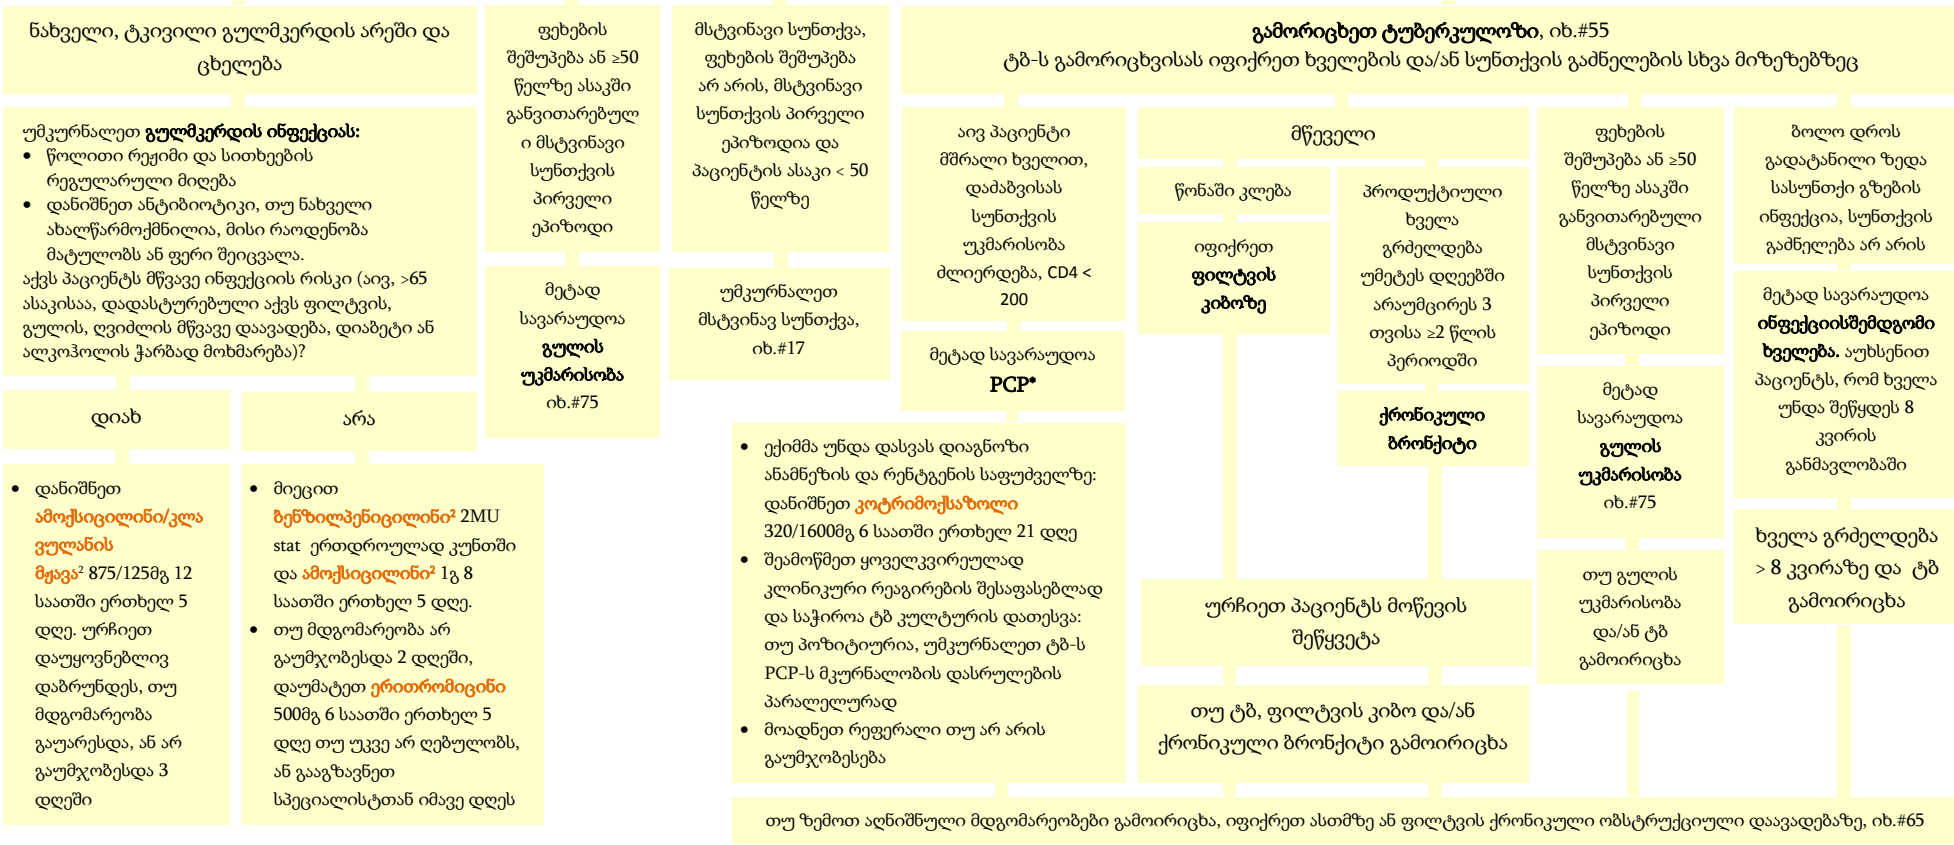 ნახველი, ტკივილი გულმკერდის არეში და
ცხელება
უმკურნალეთ გულმკერდის ინფექციას:
• წოლითი რეჟიმი და სითხეების
რეგულარული მიღება
• დანიშნეთ ანტიბიოტიკი, თუ ნახველი
ახალწარმოქმნილია, მისი რაოდენობა
მატულობს ან ფერი შეიცვალა.
აქვს პაციენტს მწვავე ინფექციის რისკი (აივ, >65
ასაკისაა, დადასტურებული აქვს ფილტვის,
გულის, ღვიძლის მწვავე დაავადება, დიაბეტი ან
ალკოჰოლის ჭარბად მოხმარება)?
დიახ
• დანიშნეთ
ამოქსიცილინი/კლა
ვულანის
მჟავა² 875/125მგ 12
საათში ერთხელ 5
დღე. ურჩიეთ
დაუყოვნებლივ
დაბრუნდეს, თუ
მდგომარეობა
გაუარესდა, ან არ
გაუმჯობესდა 3
დღეში
არა
• მიეცით
ბენზილპენიცილინი² 2MU
stat ერთდროულად კუნთში
და ამოქსიცილინი² 1გ 8
საათში ერთხელ 5 დღე.
• თუ მდგომარეობა არ
გაუმჯობესდა 2 დღეში,
დაუმატეთ ერითრომიცინი
500მგ 6 საათში ერთხელ 5
დღე თუ უკვე არ ღებულობს,
ან გააგზავნეთ
სპეციალისტთან იმავე დღეს
ფეხების
შეშუპება ან ≥50
წელზე ასაკში
განვითარებულ
ი მსტვინავი
სუნთქვის
პირველი
ეპიზოდი
მეტად
სავარაუდოა
გულის
უკმარისობა
იხ.#75
მსტვინავი სუნთქვა,
ფეხების შეშუპება
არ არის, მსტვინავი
სუნთქვის პირველი
ეპიზოდია და
პაციენტის ასაკი < 50
წელზე
უმკურნალეთ
მსტვინავ სუნთქვა,
იხ.#17
გამორიცხეთ ტუბერკულოზი, იხ.#55
ტბ-ს გამორიცხვისას იფიქრეთ ხველების და/ან სუნთქვის გაძნელების სხვა მიზეზებზეც
აივ პაციენტი
მშრალი ხველით,
დაძაბვისას
სუნთქვის
უკმარისობა
ძლიერდება, CD4 <
200
მეტად სავარაუდოა
PCP*
• ექიმმა უნდა დასვას დიაგნოზი
ანამნეზის და რენტგენის საფუძველზე:
დანიშნეთ კოტრიმოქსაზოლი
320/1600მგ 6 საათში ერთხელ 21 დღე
• შეამოწმეთ ყოველკვირეულად
კლინიკური რეაგირების შესაფასებლად
და საჭიროა ტბ კულტურის დათესვა:
თუ პოზიტიურია, უმკურნალეთ ტბ-ს
PCP-ს მკურნალობის დასრულების
პარალელურად
• მოადნეთ რეფერალი თუ არ არის
გაუმჯობესება
მწეველი
წონაში კლება
იფიქრეთ
ფილტვის
კიბოზე
პროდუქტიული
ხველა
გრძელდება
უმეტეს დღეებში
არაუმცირეს 3
თვისა ≥2 წლის
პერიოდში
ქრონიკული
ბრონქიტი
ურჩიეთ პაციენტს მოწევის
შეწყვეტა
თუ ტბ, ფილტვის კიბო და/ან
ქრონიკული ბრონქიტი გამოირიცხა
ფეხების
შეშუპება ან ≥50
წელზე ასაკში
განვითარებული
მსტვინავი
სუნთქვის
პირველი
ეპიზოდი
მეტად
სავარაუდოა
გულის
უკმარისობა
იხ.#75
თუ გულის
უკმარისობა
და/ან ტბ
გამოირიცხა
ბოლო დროს
გადატანილი ზედა
სასუნთქი გზების
ინფექცია, სუნთქვის
გაძნელება არ არის
მეტად სავარაუდოა
ინფექციისშემდგომი
ხველება. აუხსენით
პაციენტს, რომ ხველა
უნდა შეწყდეს 8
კვირის
განმავლობაში
ხველა გრძელდება
> 8 კვირაზე და ტბ
გამოირიცხა
თუ ზემოთ აღნიშნული მდგომარეობები გამოირიცხა, იფიქრეთ ასთმზე ან ფილტვის ქრონიკული ობსტრუქციული დაავადებაზე, იხ.#65